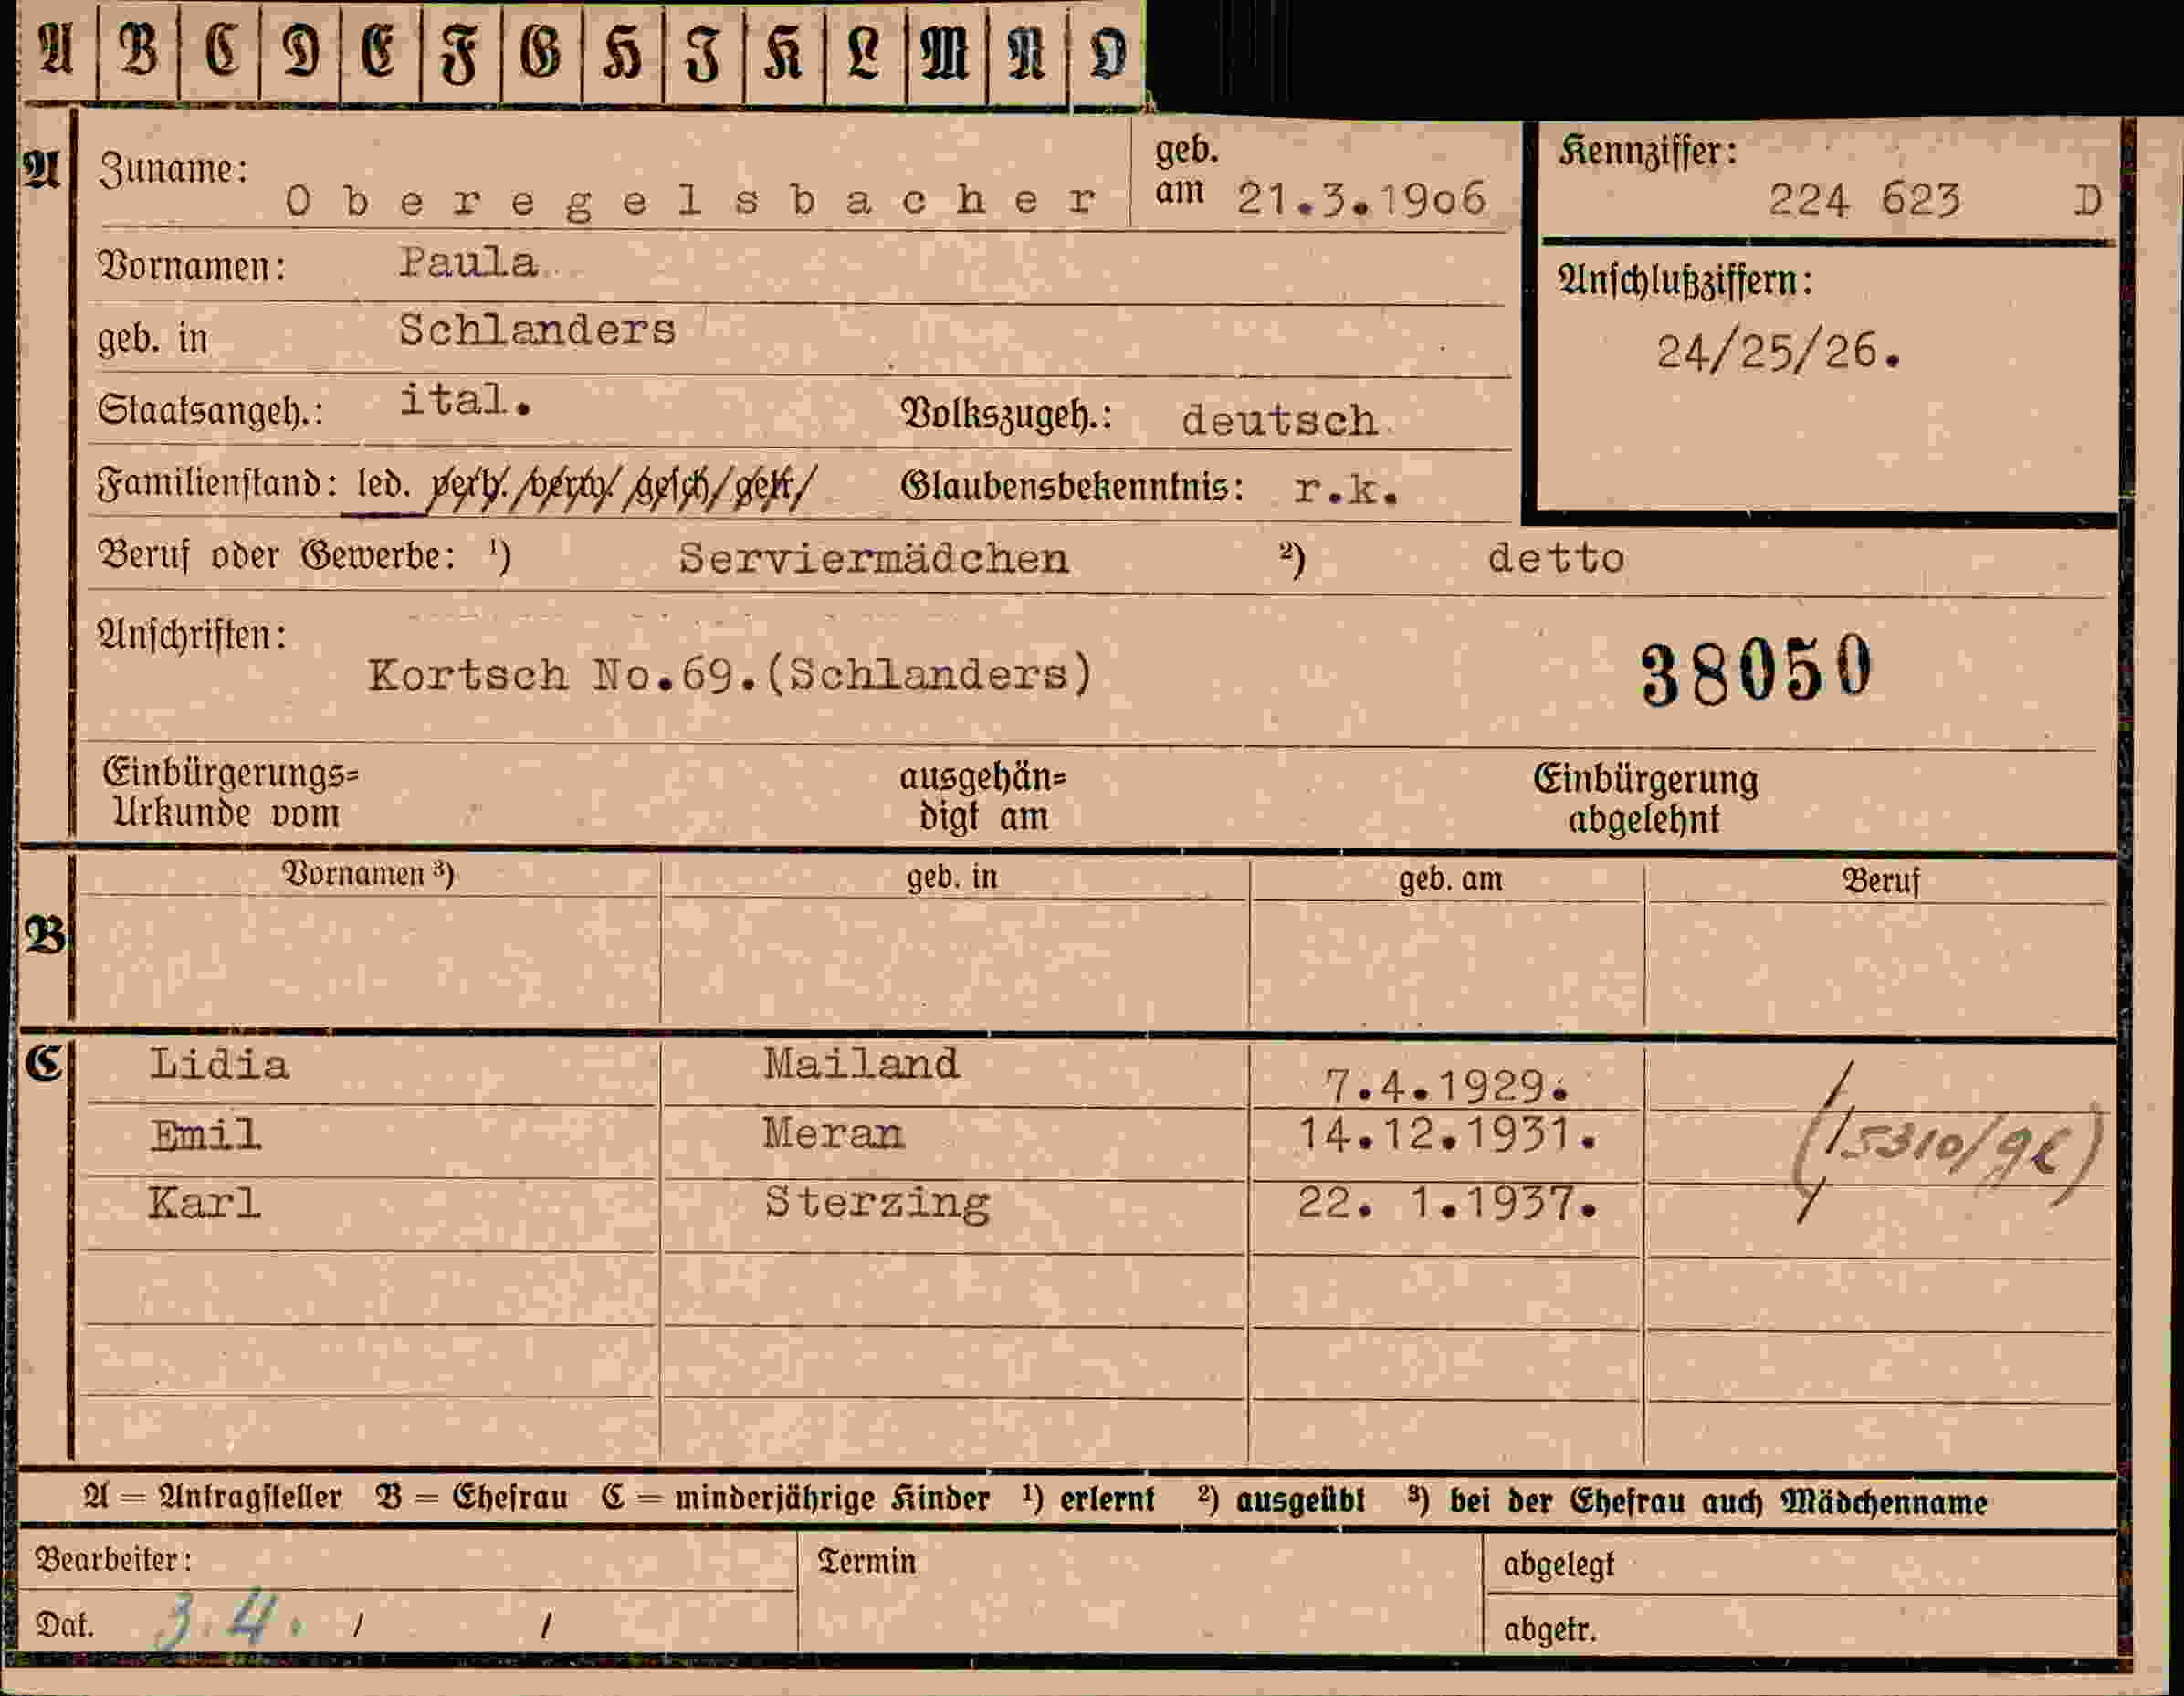 A B C D E F G H I K L M N O
A Zuname: Oberegelsbacher geb. am 21.3.1906 Kennziffer: 224 623 D
Vornamen: Paula
geb. in Schlanders Anschlußziffern: 24/25/26.
Staatsangeh.: ital. Volkszugeh.: deutsch
Familienstand: led. verh. verw. gesch. getr. Glaubensbekenntnis: r.k.
Beruf oder Gewerbe: ¹) Serviermädchen ²) detto
Anschriften:
Kortsch No.69.(Schlanders) 38050
Einbürgerungs= ausgehän= Einbürgerung
Urkunde vom digt am abgelehnt
Vornamen ³) geb. in geb. am Beruf
B
C Lidia Mailand 7.4.1929.
Emil Meran 14.12.1931. (15310/9e)
Karl Sterzing 22. 1.1937.
A = Antragsteller B = Ehefrau C = minderjährige Kinder ¹) erlernt ²) ausgeübt ³) bei der Ehefrau auch Mädchenname
Bearbeiter: Termin abgelegt
Dat. 3.4. / / abgetr.